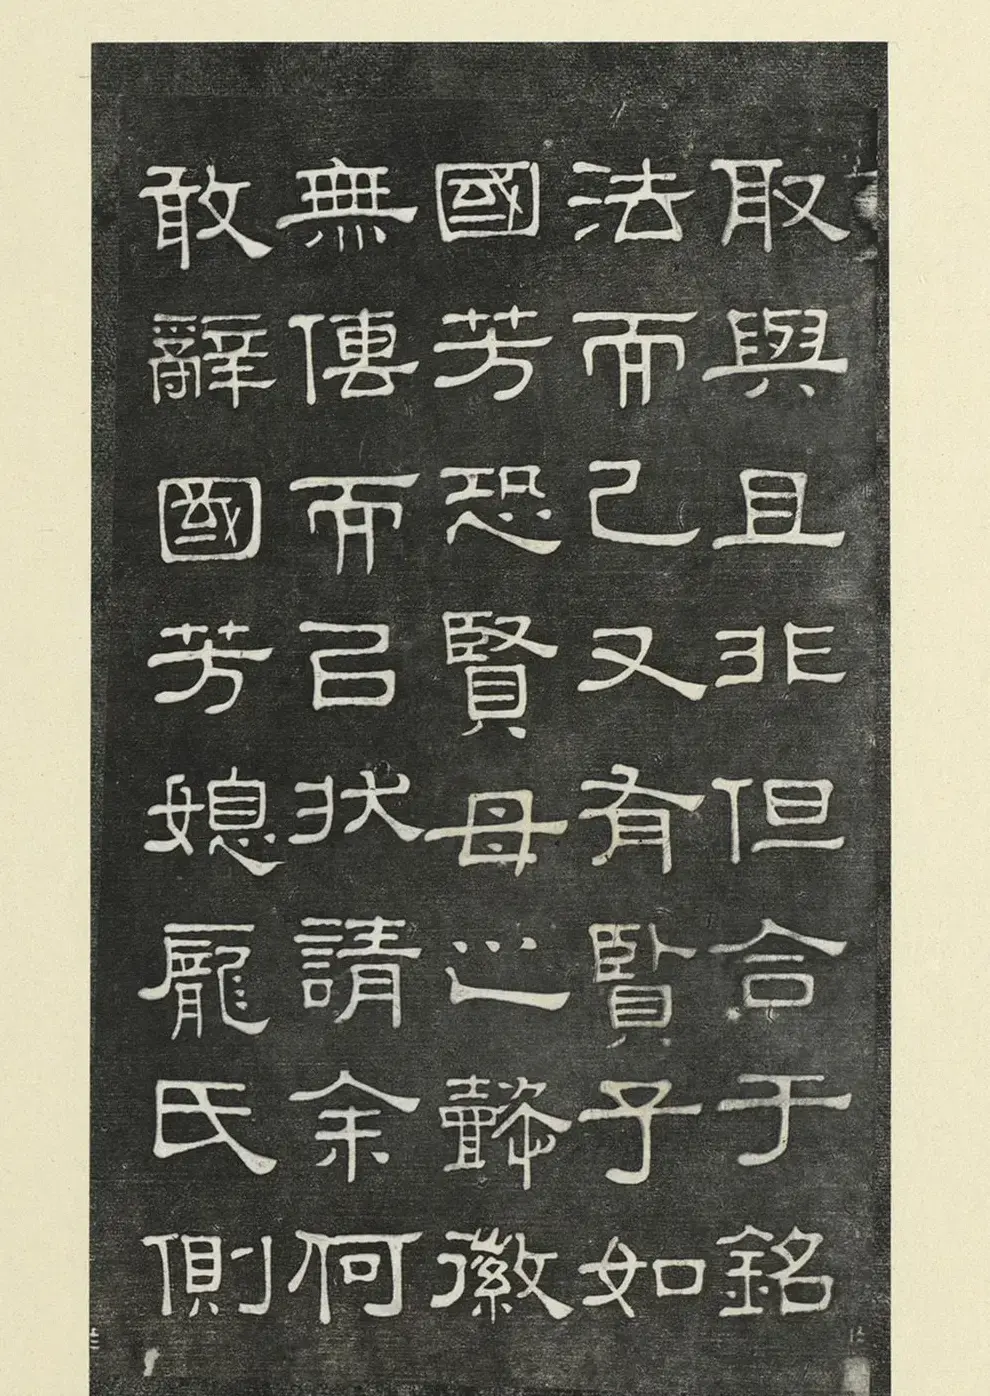 取與且非但合于銘
法而已又有賢子如
國芳恐賢母之懿徽
無傳而㠯狀請余何
敢辭國芳媳龐氏側